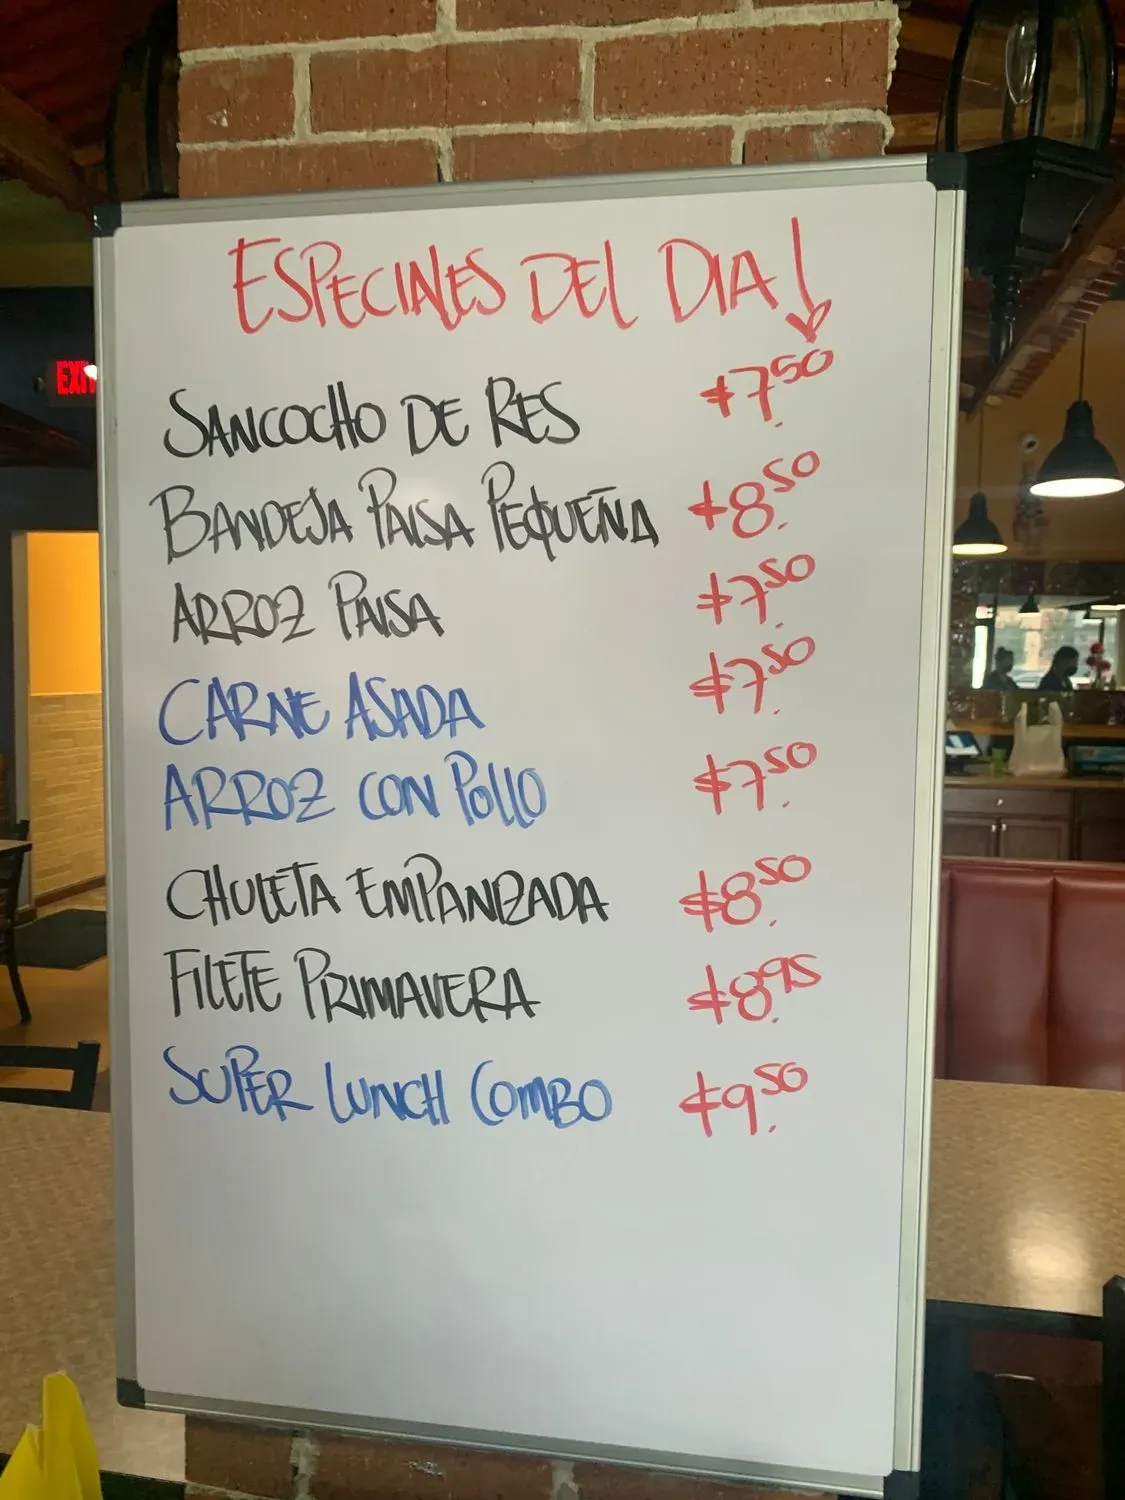 ESPECIALES DEL DIA!
SANCOCHO DE RES $7.50
BANDEJA PAISA PEQUEÑA $8.50
ARROZ PAISA $7.50
CARNE ASADA $7.50
ARROZ CON POLLO $7.50
CHULETA EMPANIZADA $8.50
FILETE PRIMAVERA $8.95
SUPER LUNCH COMBO $9.50
EXIT